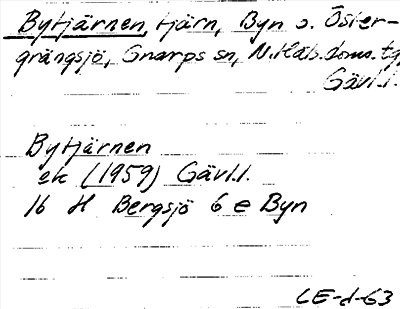 Bytjärnen, tjärn, Byn o. Öster-
grängsjö, Gnarps sn, N.Häls.doms.tg,
Gävl.l.
Bytjärnen
ek (1959) Gävl.l.
16 H Bergsjö 6 e Byn
CE-d-63